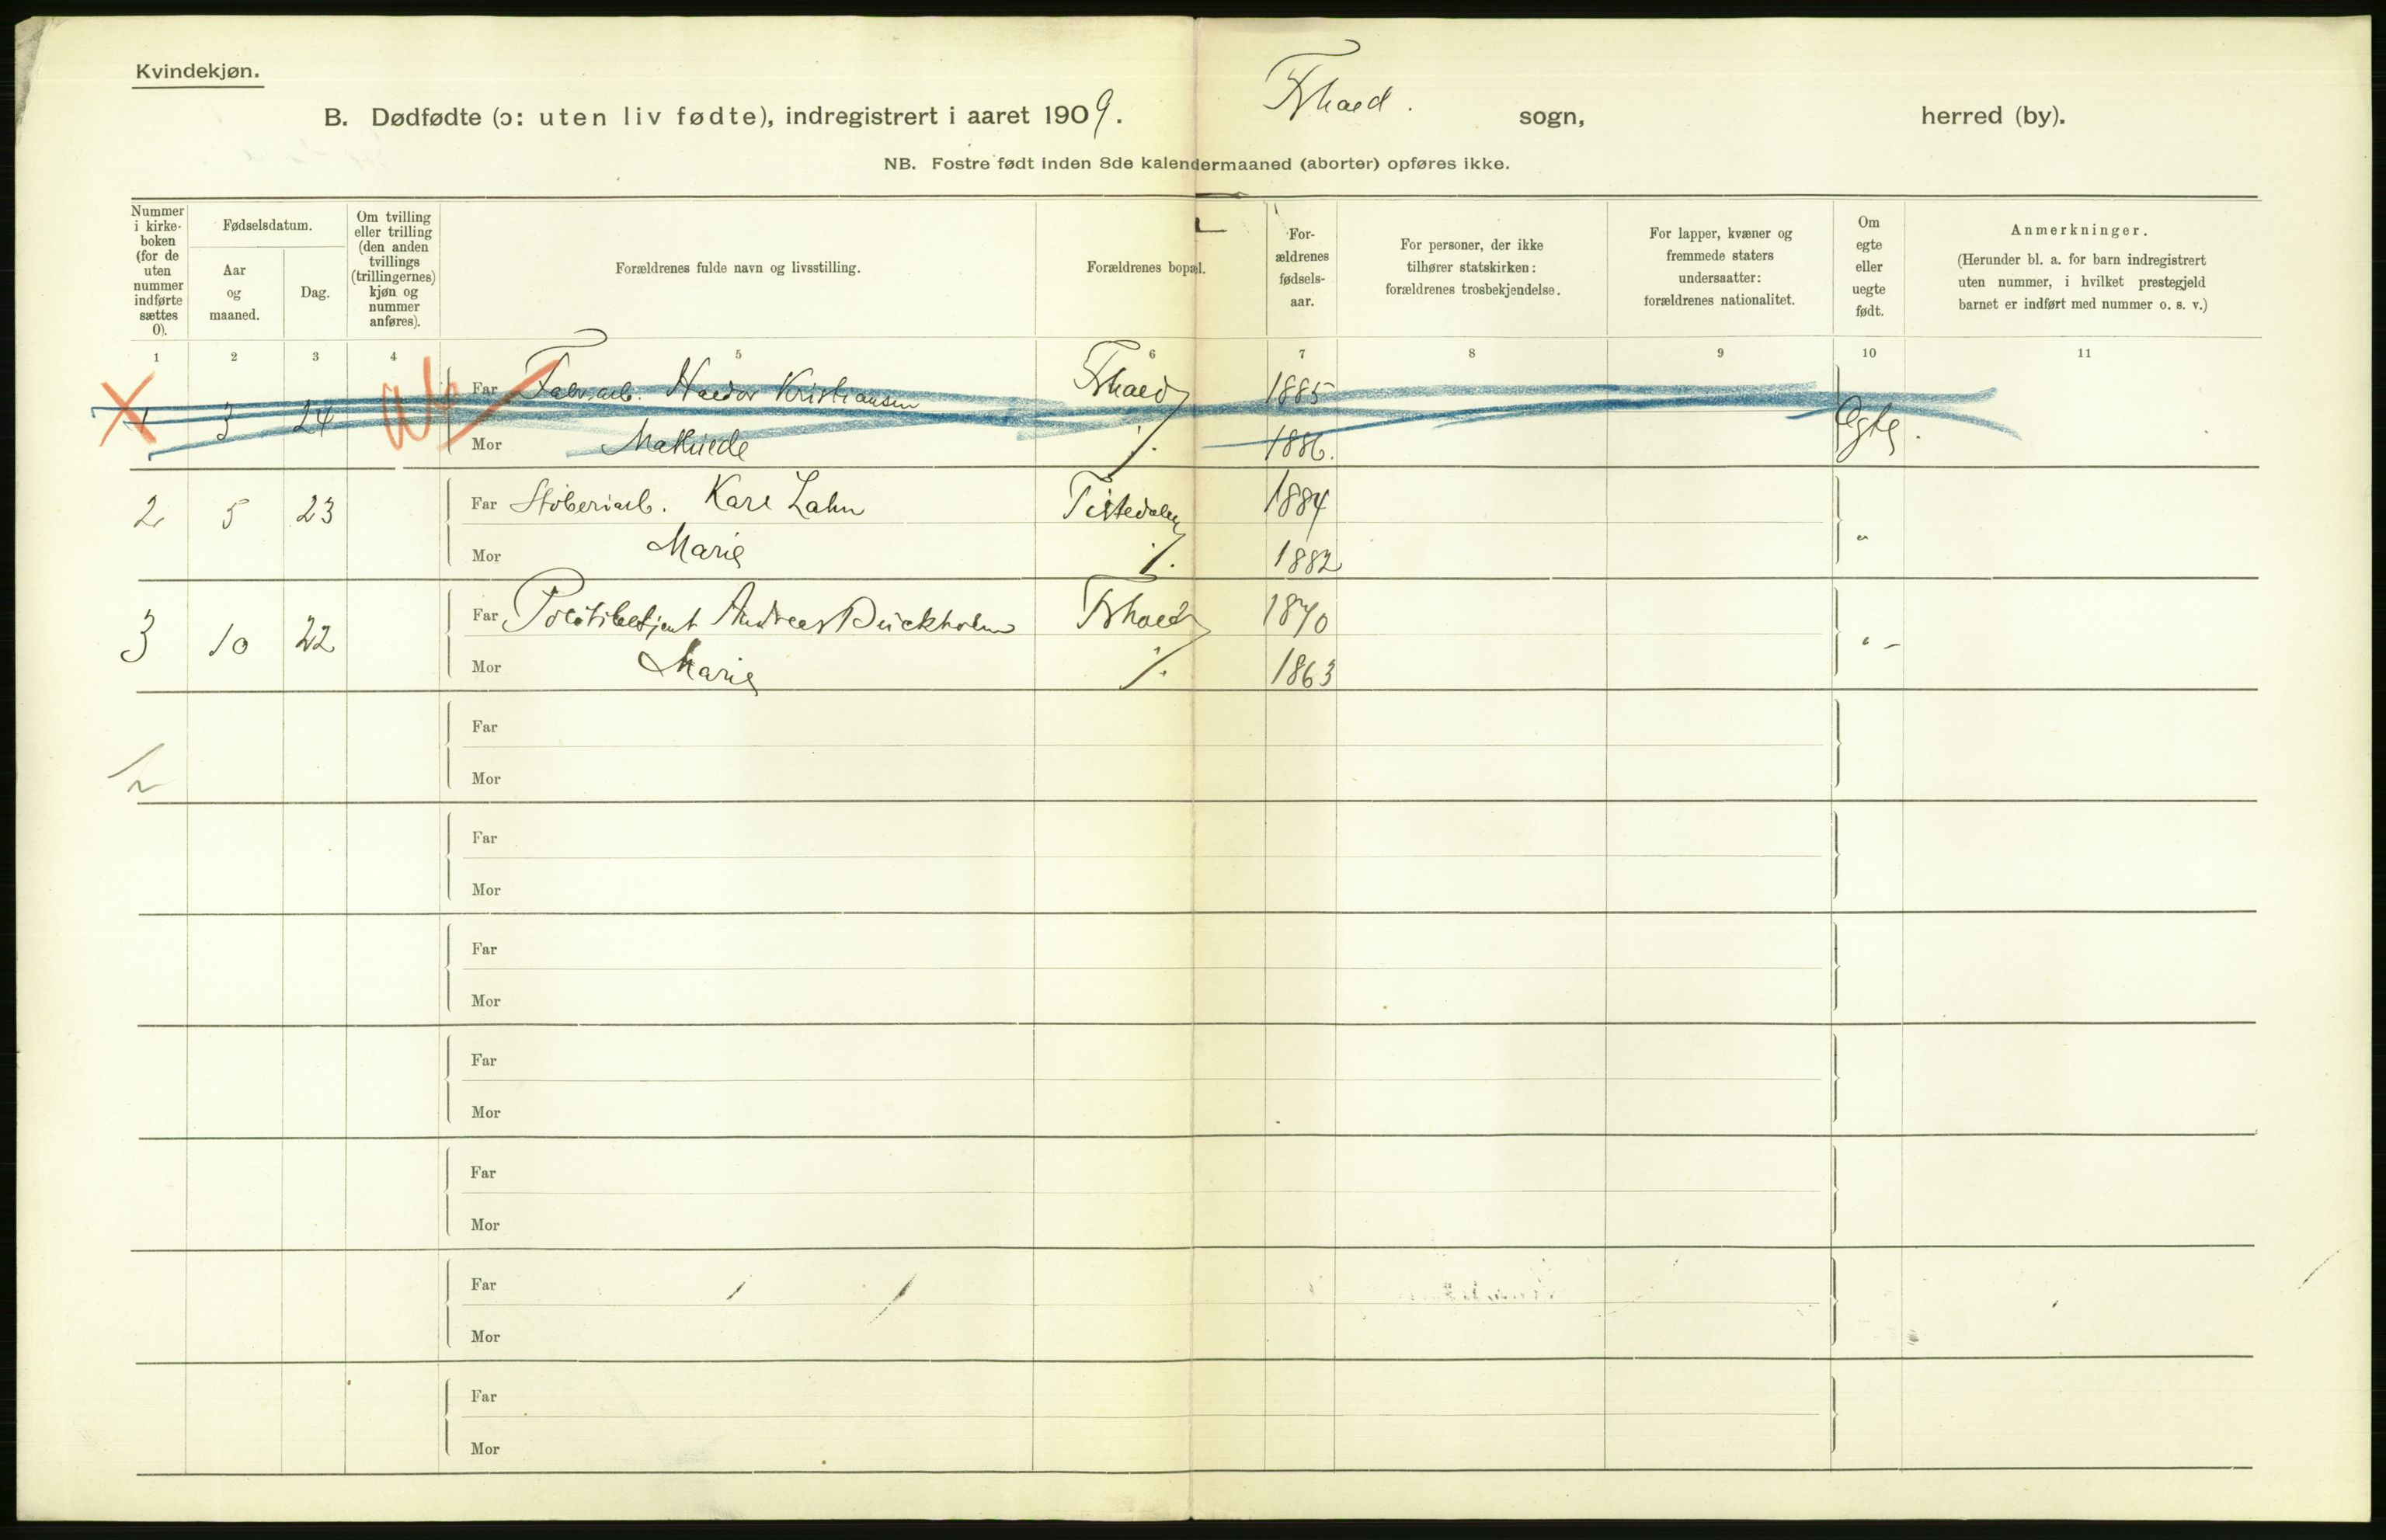 Kvindekjøn.
B. Dødfødte (ɔ: uten liv fødte), indregistrert i aaret 1909. Frhald. sogn, herred (by).
NB. Fostre født inden 8de kalendermaaned (aborter) opføres ikke.
Nummer i kirke-boken (for de uten nummer indførte sættes 0).
Fødselsdatum.
Aar og maaned.
Dag.
Om tvilling eller trilling (den anden tvillings (trillingernes) kjøn og nummer anføres).
Forældrenes fulde navn og livsstilling.
Forældrenes bopæl.
For-ældrenes fødsels-aar.
For personer, der ikke tilhører statskirken: forældrenes trosbekjendelse.
For lapper, kvæner og fremmede staters undersaatter: forældrenes nationalitet.
Om egte eller uegte født.
Anmerkninger.
(Herunder bl. a. for barn indregistrert uten nummer, i hvilket prestegjeld barnet er indført med nummer o. s. v.)
1 2 3 4 5 6 7 8 9 10 11
1 3 24 Far Fabr.arb. Haldor Kristiansen Frhald 1885 Ægte.
Mor Mathilde 1886.
2 5 23 Far Støberiarb. Karl Lahn Tistedalen 1884 "
Mor Marie 1882
3 10 22 Far Politibetjent Andreas Frhald 1870 " -
Mor Marie 1863
Far
Mor
Far
Mor
Far
Mor
Far
Mor
Far
Mor
Far
Mor
Far
Mor